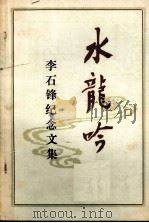 水龍吟
李石锋纪念文集
www.duxiu.com